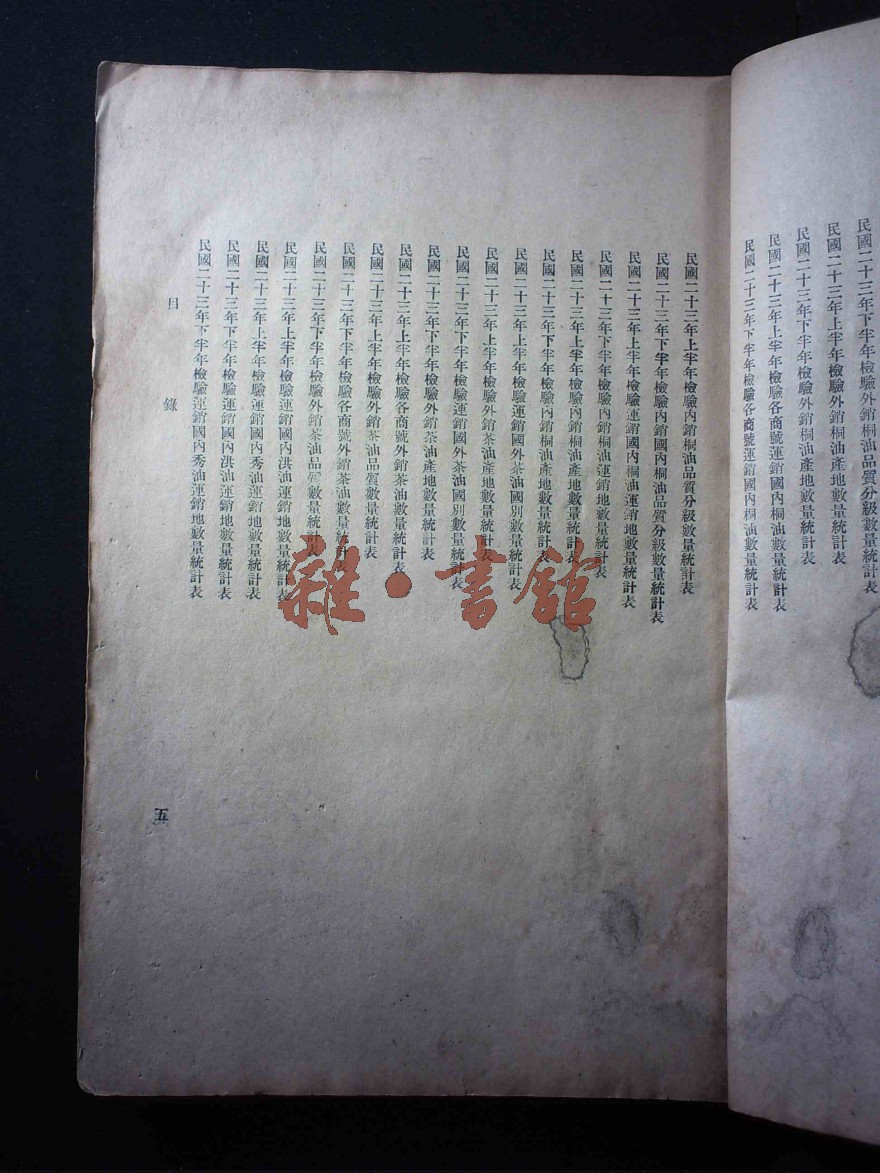 民國二十三年上半年檢驗外銷桐油品質分級數量統計表
民國二十三年上半年檢驗外銷桐油產地數量統計表
民國二十三年下半年檢驗外銷桐油產地數量統計表
民國二十三年上半年檢驗各商號運銷國內桐油數量統計表
民國二十三年下半年檢驗各商號運銷國內桐油數量統計表
民國二十三年上半年檢驗內銷桐油品質分級數量統計表
民國二十三年下半年檢驗內銷國內桐油品質分級數量統計表
民國二十三年上半年檢驗運銷國內桐油運銷地數量統計表
民國二十三年下半年檢驗內銷桐油運銷地數量統計表
民國二十三年上半年檢驗內銷桐油產地數量統計表
民國二十三年下半年檢驗內銷桐油產地數量統計表
民國二十三年上半年檢驗運銷國外茶油國別數量統計表
民國二十三年上半年檢驗外銷茶油產地數量統計表
民國二十三年下半年檢驗運銷國外茶油國別數量統計表
民國二十三年下半年檢驗外銷茶油產地數量統計表
民國二十三年上半年檢驗各商號外銷茶油數量統計表
民國二十三年上半年檢驗外銷茶油品質數量統計表
民國二十三年下半年檢驗各商號外銷茶油數量統計表
民國二十三年下半年檢驗外銷茶油品質數量統計表
民國二十三年上半年檢驗運銷國內洪油運銷地數量統計表
民國二十三年上半年檢驗運銷國內秀油運銷地數量統計表
民國二十三年下半年檢驗運銷國內洪油運銷地數量統計表
民國二十三年下半年檢驗運銷國內秀油運銷地數量統計表
目錄
五
雜·書館